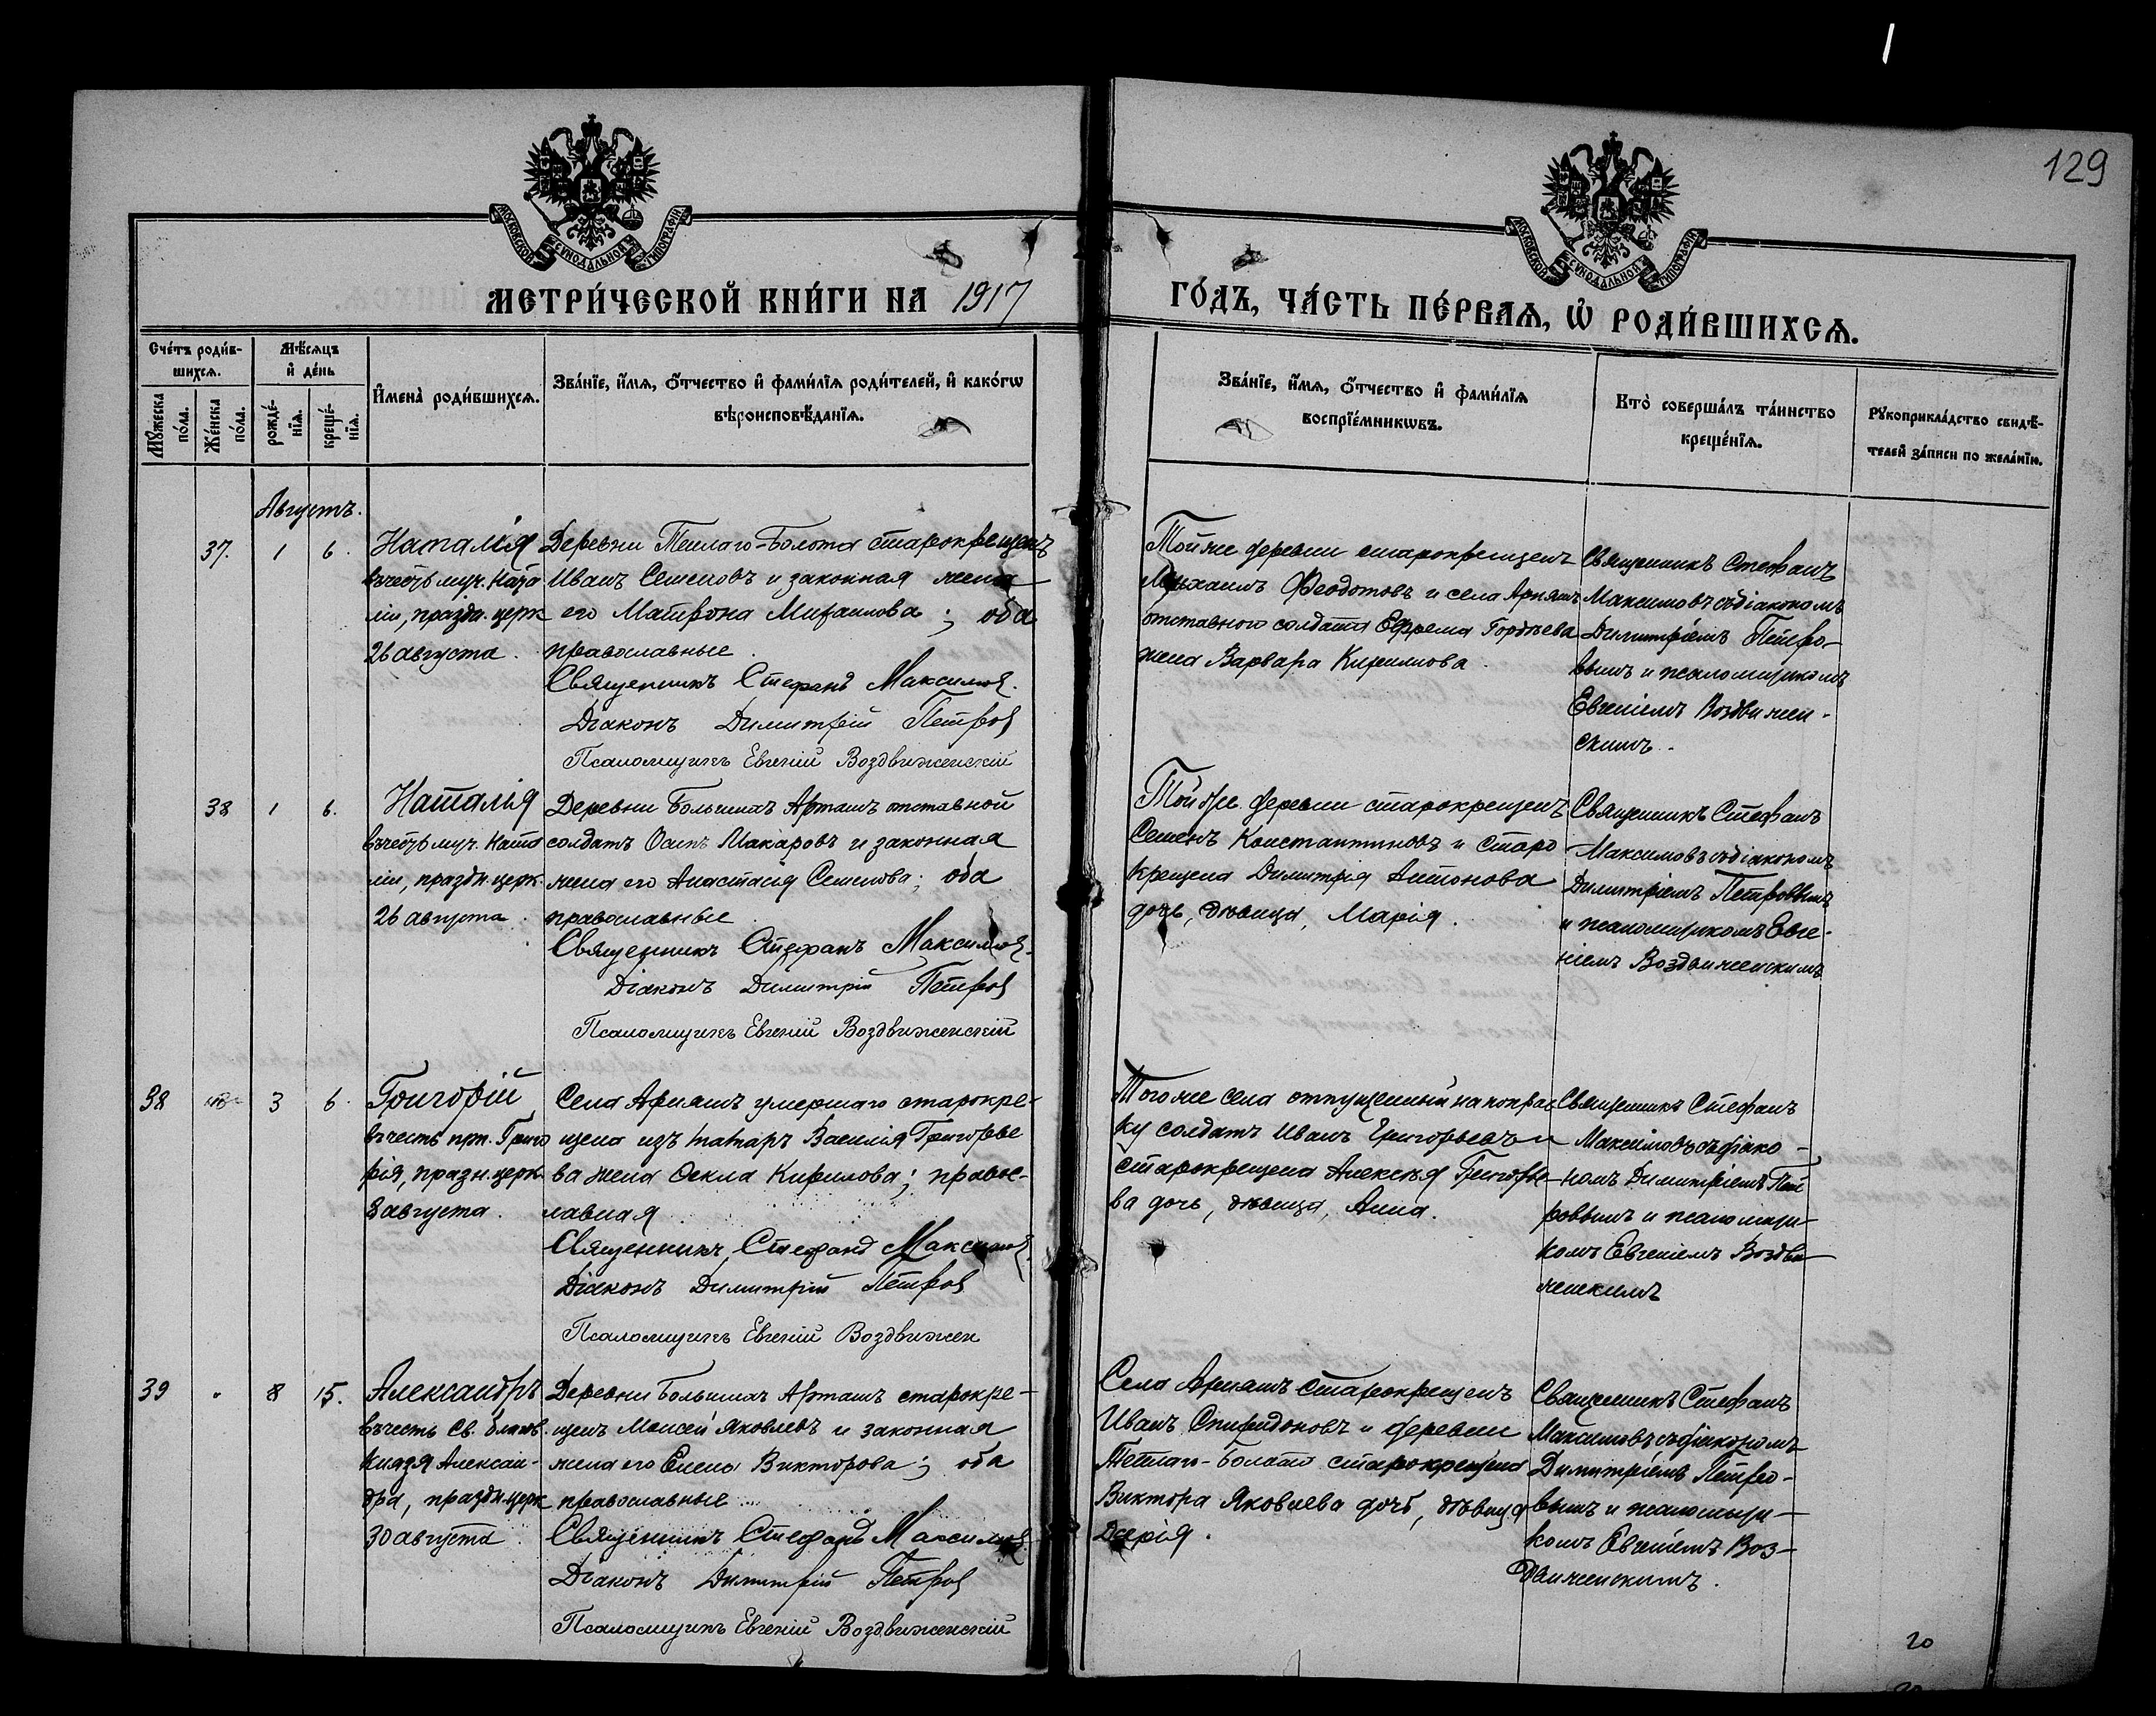 129
МОСКОВСКОЙ СѴНОДАЛЬНОЙ ТИПОГРАФІИ
МОСКОВСКОЙ СѴНОДАЛЬНОЙ ТИПОГРАФІИ
МЕТРИ́ЧЕСКОЙ КНИ́ГИ НА 1917
ГО́ДЪ, ЧА́СТЬ ПЕ́РВАѦ, Ѡ҆ РОДИ́ВШИХСѦ.
Сче́тъ роди́в-
шихсѧ.
Мѣ́сѧцъ
и҆ де́нь
Мꙋ́жеска
по́ла.
Же́нска
по́ла.
рожде́-
нїѧ.
креще́-
нїѧ.
И҆мена̀ роди́вшихсѧ.
Зва́нїе, и҆́мѧ, ѻ҆́тчество и҆ фами́лїѧ роди́телей, и҆ како́гѡ
вѣроисповѣ́данїѧ.
Зва́нїе, и҆́мѧ, ѻ҆́тчество и҆ фами́лїѧ
воспрїе́мникѡвъ.
Кто̀ соверша́лъ та́инство
креще́нїѧ.
Рꙋкоприкла́дство свидѣ́-
телей за́писи по жела́нїю.
Августъ.
37. 1 6.
Наталія
въ честь муч. Ната
ліи, праздн. церк
26 августа.
Деревни Теплаго-Болота старокрещенъ
Иванъ Семеновъ и законная жена
его Матрона Михаилова; оба
православные.
Священникъ Стефанъ Максимов.
Діаконъ Димитрій Петров
Псаломщикъ Евгеній Воздвиженскій
Той же деревни старокрещенъ
Михаилъ Феодотовъ и села
отставного солдата Ефрема Гордѣева
жена Варвара Кириллова.
Священникъ Стефанъ
Максимовъ съ діакономъ
Димитріемъ Петро-
вымъ и псаломщикомъ
Евгеніемъ Воздвижен-
скимъ.
38 1 6.
Наталія
въ честь муч. Ната
ліи, праздн. церк.
26 августа.
Деревни Большихъ Арташъ отставной
солдатъ Осипъ Макаровъ и законная
жена его Анастасія Семенова; оба
православные
Священникъ Стефанъ Максимов.
Діаконъ Димитрій Петров
Псаломщикъ Евгеній Воздвиженскій
Той же деревни старокрещенъ
Семенъ Константиновъ и старо
крещена Димитрія Антонова
дочь, дѣвица, Марія.
Священникъ Стефанъ
Максимовъ съ діакономъ
Димитріемъ Петровымъ
и псаломщикомъ Евге-
ніемъ Воздвиженскимъ
38 3 6.
Григорій
въ честь прп. Григо
рія, праздн. церк
8 августа.
Села умершаго старокре-
щена изъ татаръ Василія Григорье
ва жена Фекла Кирилова; правос-
лавная
Священникъ Стефанъ Максимов.
Діаконъ Димитрій Петров
Псаломщикъ Евгеній Воздвижен
Того же села отпущенный на поправ
ку солдатъ Иванъ Григорьевъ и
старокрещена Алексѣя Григорье-
ва дочь, дѣвица, Анна.
Священникъ Стефанъ
Максимовъ съ діако-
номъ Димитріемъ Пет
ровымъ и псаломщи-
комъ Евгеніемъ Воздви
женскимъ
39 " 8 15.
Александръ
въ честь Св. благов.
Князя Алексан-
дра, праздн. церк
30 августа.
Деревни Большихъ Арташъ старокре-
щенъ Моисей Яковлевъ и законная
жена его Елена Викторова; оба
православные
Священникъ Стефанъ Максимов.
Діаконъ Димитрій Петров
Псаломщикъ Евгеній Воздвиженскій
Села старокрещенъ
Иванъ Спиридоновъ и деревни
Теплаго-Болота старокрещена
Виктора Яковлева дочь, дѣвица
Дарія.
Священникъ Стефанъ
Максимовъ съ діакономъ
Димитріемъ Петро-
вымъ и псаломщи-
комъ Евгеніемъ Воз-
движенскимъ.
20